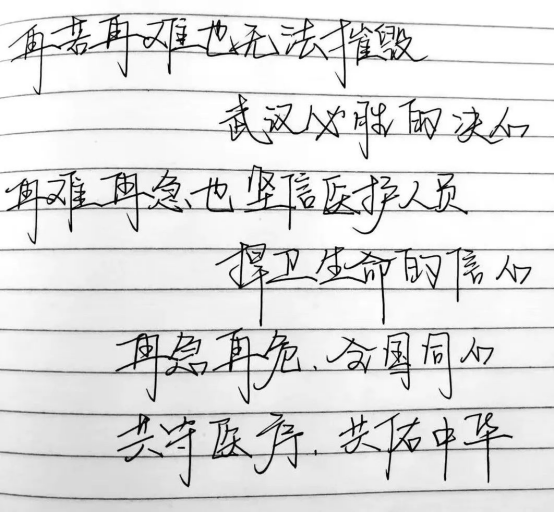 再苦再难也无法摧毁
武汉必胜的决心
再难再急也坚信医护人员
捍卫生命的信心
再急再危,全国同心
共守医序,共佑中华